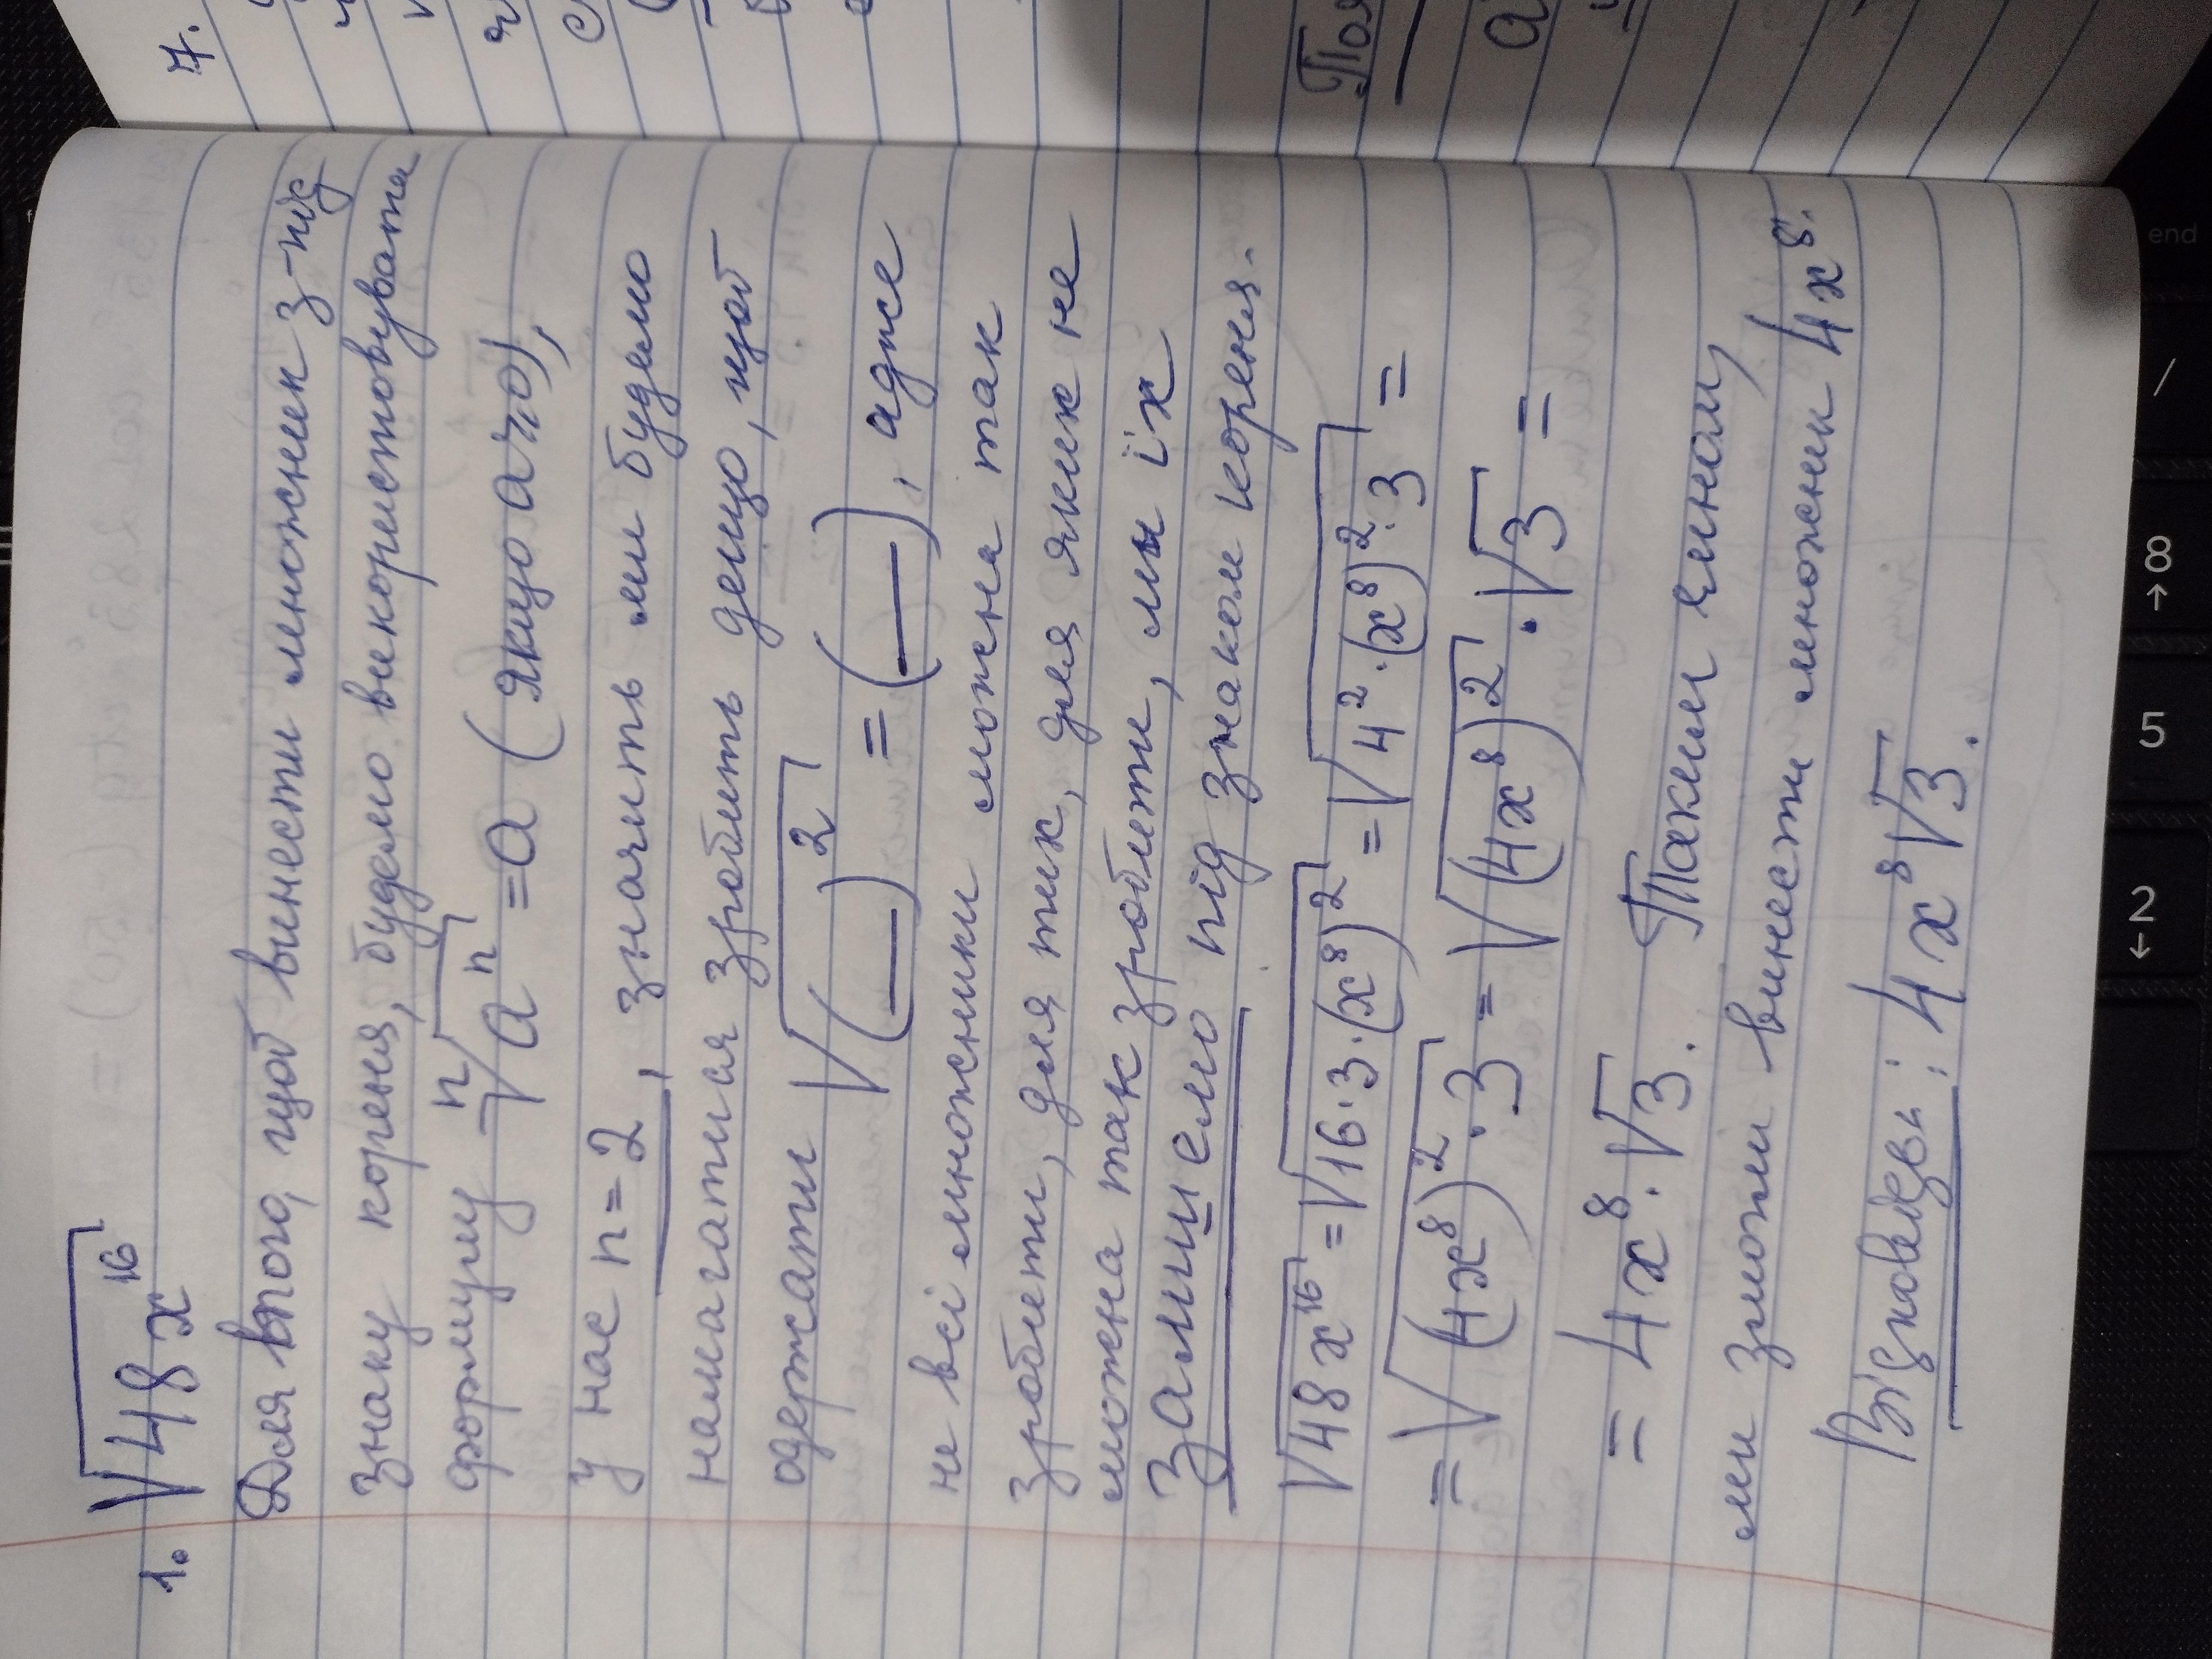 1. √48x¹⁶
Для того, щоб винести множник з-під
знаку кореня, будемо використовувати
формулу ⁿ√aⁿ = a (якщо a≥0),
у нас n=2, значить ми будемо
намагатися зробить дещо, щоб
одержати √(__)² = (__), адже
не всі множники можна так
зробити, для тих, для яких не
можна так зробити, мы їх
залишемо під знаком кореня.
√48x¹⁶ = √16·3·(x⁸)² = √4²·(x⁸)²·3 =
= √(4x⁸)²·3 = √(4x⁸)² · √3 =
= 4x⁸·√3. Таким чином,
ми змогли винести множник 4x⁸.
Відповідь: 4x⁸√3.
7.
a
end
/
8
→
5
2
←